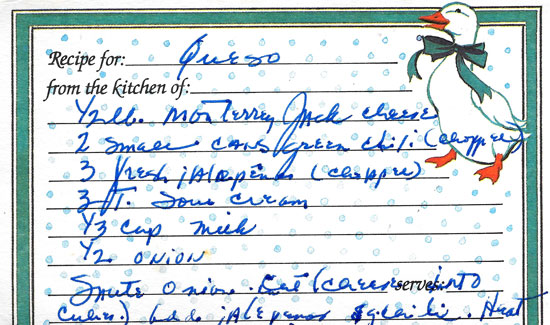 Recipe for: Queso
from the kitchen of:
1/2 lb. Monterrey Jack cheese
2 small cans green chili (chopped)
3 fresh jalapenos (chopped)
3 T. sour cream
1/3 cup milk
1/2 onion
serves:
Saute onion. Cut (cheese into
cubes.) Add jalepenos &. Heat